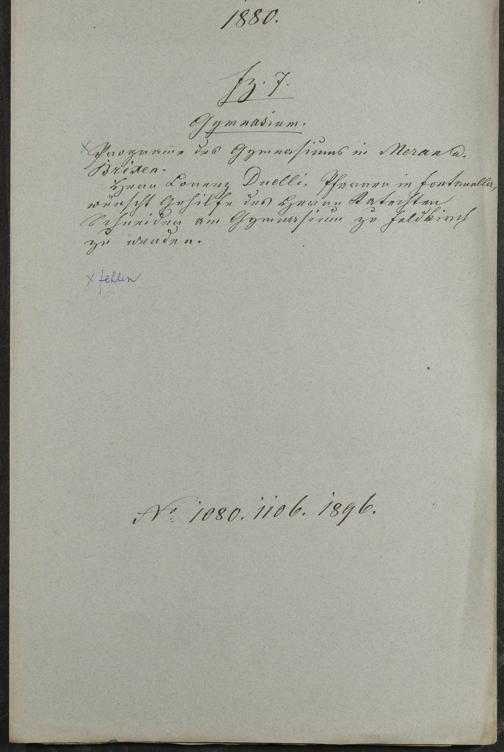 1880.
fz. 7.
Gymnasium.
x Programme des Gymnasiums in Meran u.
Brixen.
Herr Lorenz Duelli, Pfarrer in Fontanella,
wünscht Gehilfe des Herrn Katecheten
Schneider am Gymnasium zu Feldkirch
zu werden.
x fehlen
No. 1080. 1106. 1896.